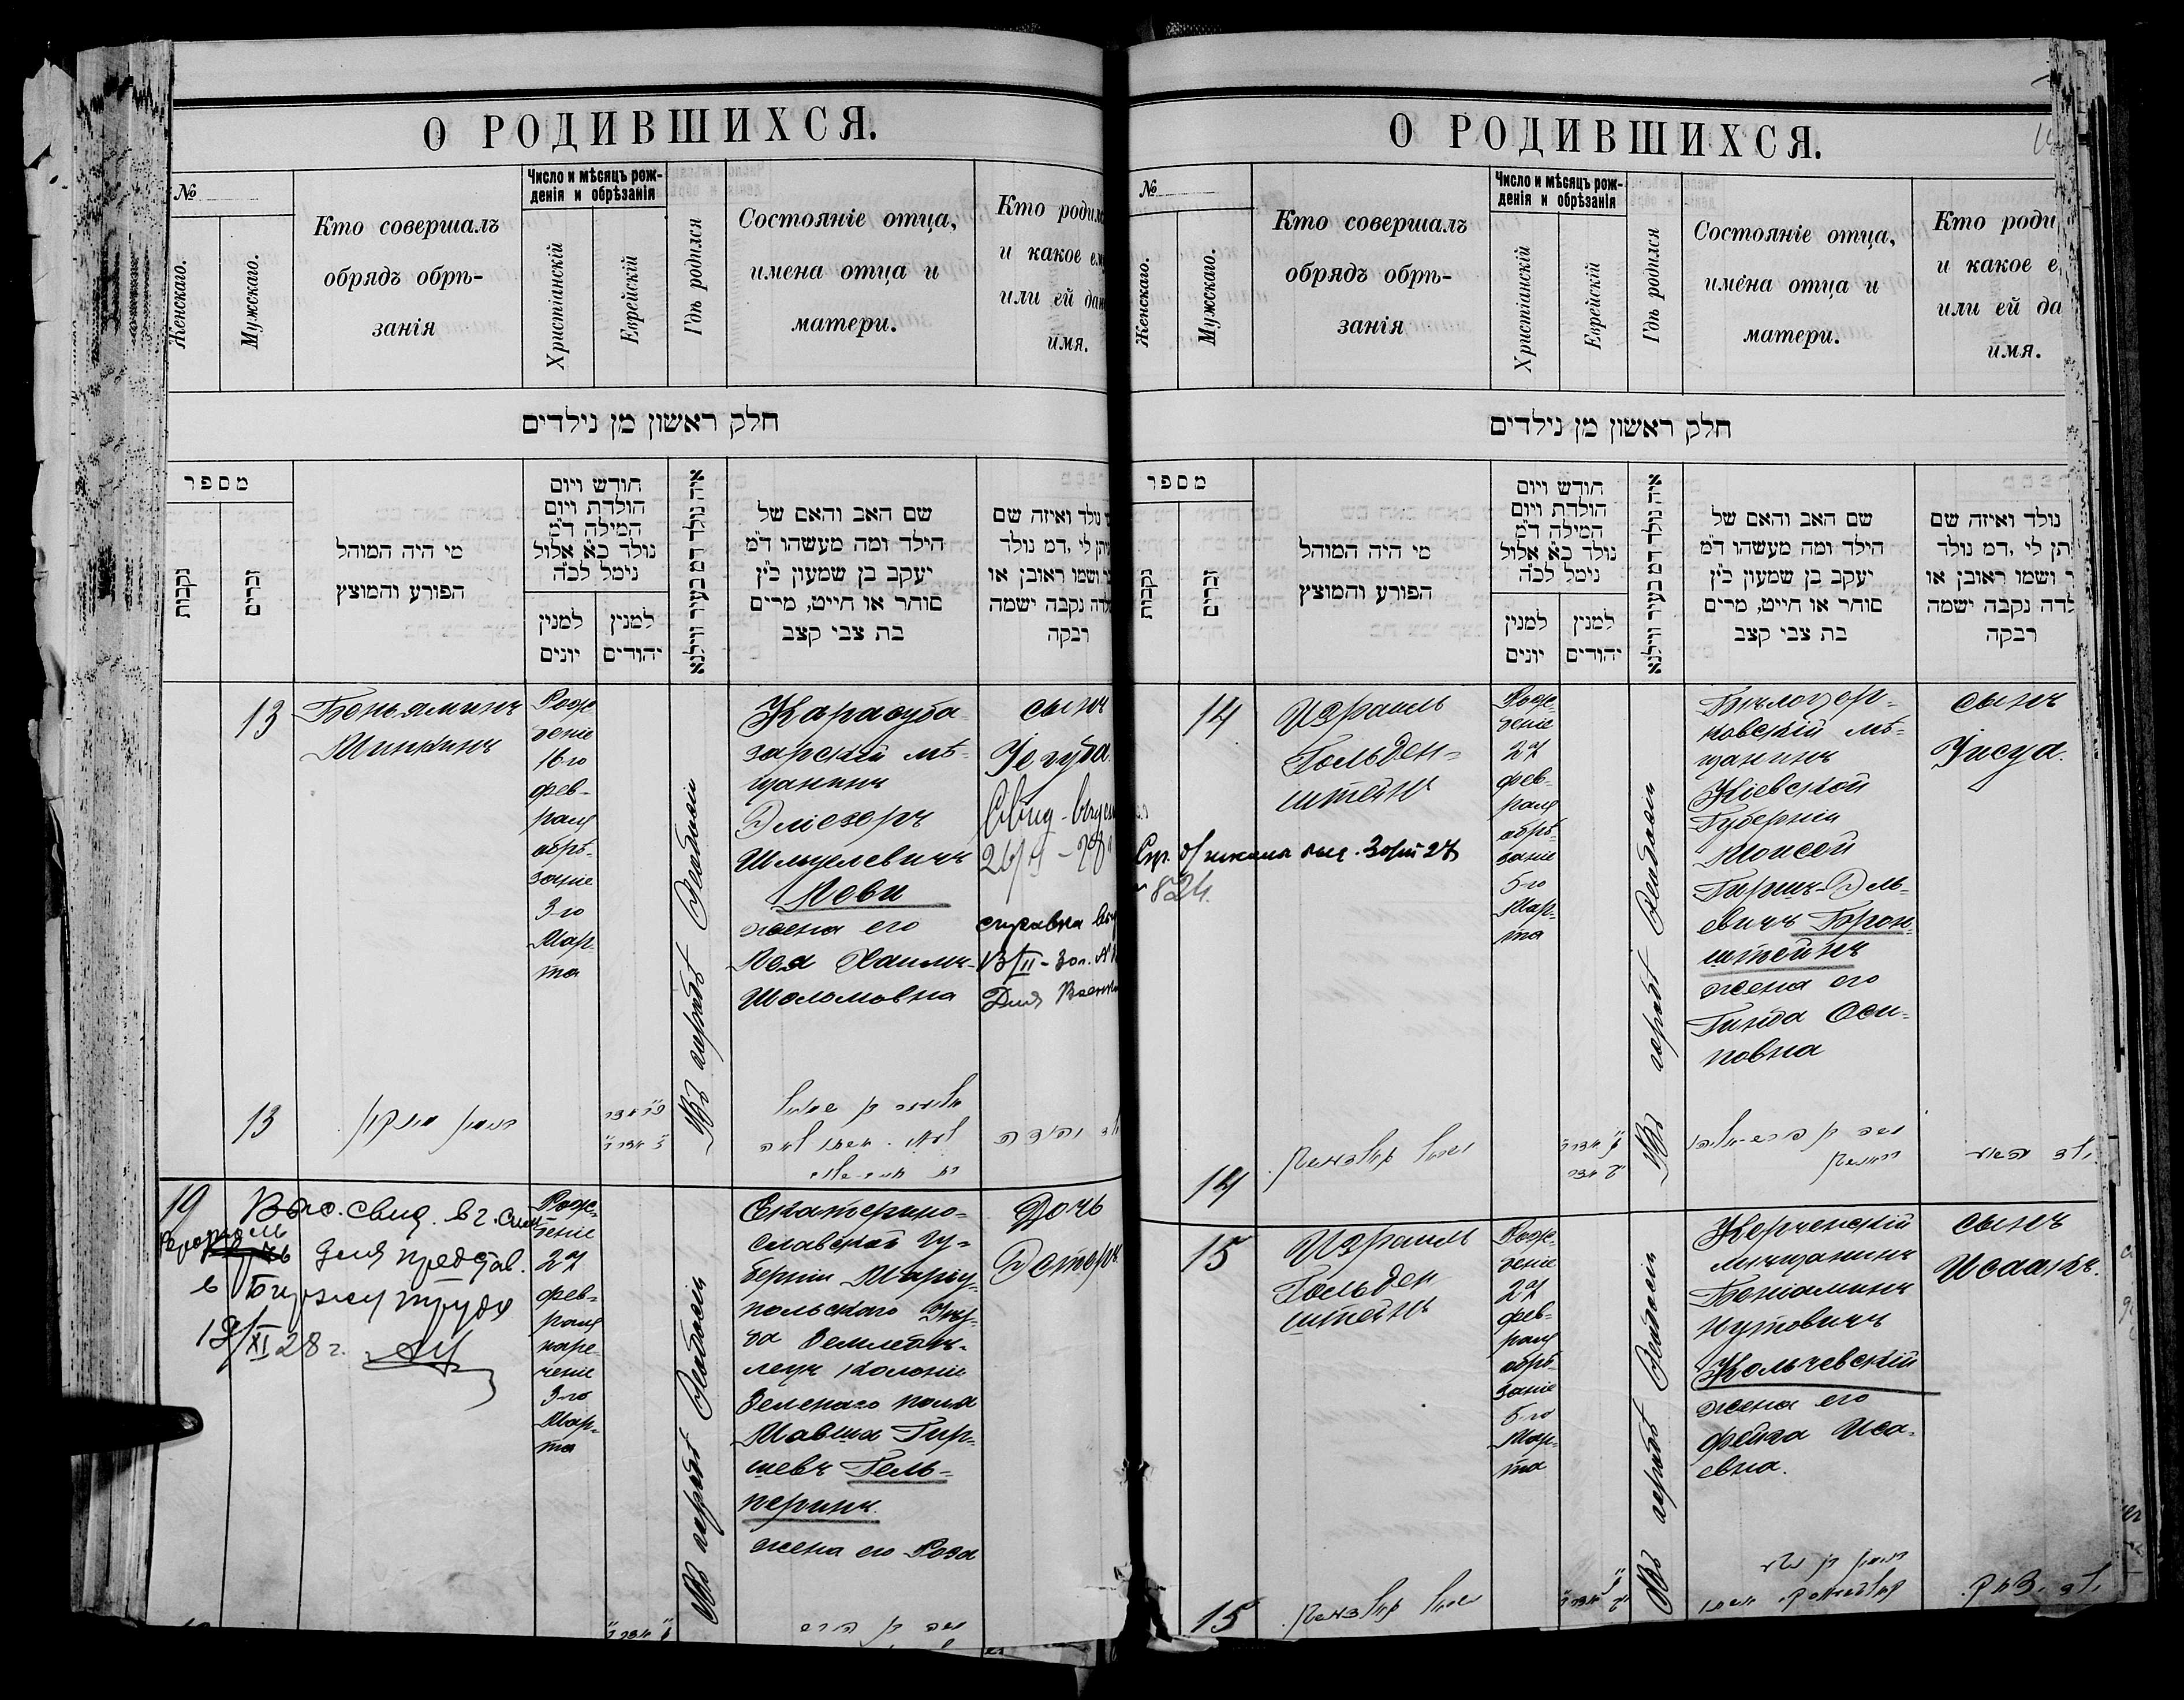 О РОДИВШИХСЯ.
№
Женскаго.
Мужскаго.
Кто совершалъ
обрядъ обрѣ-
занія
Число и мѣсяцъ рож-
денія и обрѣзанія
Христіанскій
Еврейскій
Гдѣ родился
Состояніе отца,
имена отца и
матери.
Кто родилс
и какое ем
или ей дан
имя.
חלק ראשון מן נילדים
מספר
נקבות
זכרים
מי היה המוהל
הפורע והמוצץ
חודש ויום
הולדת ויום
המילה ד״מ
נולד כ״א אלול
נימל לכ״ה
למנין
יונים
למנין
יהודים
איה נולד ד״מ בעיר ווילנא
שם האב והאם של
הילד ומה מעשהו ד״מ
יעקב בן שמעון כ״ץ
סוחר או חייט, מרים
בת צבי קצב
נולד ואיזה שם
תן לי, דמ נולד
ושמו ראובן או
לדה נקבה ישמה
רבקה
13
Беньяминъ
Минкинъ
Рож-
деніе
16го
фев-
раля
обрѣ-
заніе
3-го
Мар-
та
Въ городѣ Феодосіи
Карасуба-
зарскій мѣ-
щанинъ
Эліезеръ
Шмулевичъ
Леви
жена его
Лея Хаимъ-
Шоломовна
сынъ
Іегуда.
справка
13/II-30г.
Для
13
בנימין מינקין
19
Выс. свид. в г.
для представ.
в Биржу труда
19/XI 28 г.
Рож-
деніе
27
фев-
раля
наре-
ченіе
3-го
Мар-
та
Въ городѣ Феодосіи
Екатерино-
славской гу-
берніи Маріу-
польского Уѣз-
да Землевла-
лецъ колоніи
Зеленаго поля
Мавша Гир-
шевъ Гель-
перинъ
жена его Роза
Дочь
Эстеръ
О РОДИВШИХСЯ.
№
Женскаго.
Мужскаго.
Кто совершалъ
обрядъ обрѣ-
занія
Число и мѣсяцъ рож-
денія и обрѣзанія
Христіанскій
Еврейскій
Гдѣ родился
Состояніе отца,
имена отца и
матери.
Кто роди
и какое е
или ей да
имя.
חלק ראשון מן נילדים
מספר
נקבות
זכרים
מי היה המוהל
הפורע והמוצץ
חודש ויום
הולדת ויום
המילה ד״מ
נולד כ״א אלול
נימל לכ״ה
למנין
יונים
למנין
יהודים
איה נולד ד״מ בעיר ווילנא
שם האב והאם של
הילד ומה מעשהו ד״מ
יעקב בן שמעון כ״ץ
סוחר או חייט, מרים
בת צבי קצב
נולד ואיזה שם
תן לי, דמ נולד
ר ושמו ראובן או
לדה נקבה ישמה
רבקה
14
Израиль
Гольден-
штейнъ
Рож-
деніе
27
фев-
раля
обрѣ-
заніе
5-го
Мар-
та
Въ городѣ Феодосіи
Бѣлоцер-
ковскій мѣ-
щанинъ
Кіевской
Губерніи
Моисей
Гиршъ-Эль-
евичъ Брон-
штейнъ
жена его
Гинда Оси-
повна
сынъ
824.
14
15
Израиль
Гольден
штейнъ
Рож-
деніе
27
фев-
раля
обрѣ-
заніе
5-го
Мар-
та
Въ городѣ Феодосіи
Керченскій
мѣщанинъ
Беніаминъ
Нутовичъ
Кольчевскій
жена его
Фейга Иса-
евна.
сынъ
Исаакъ.
15